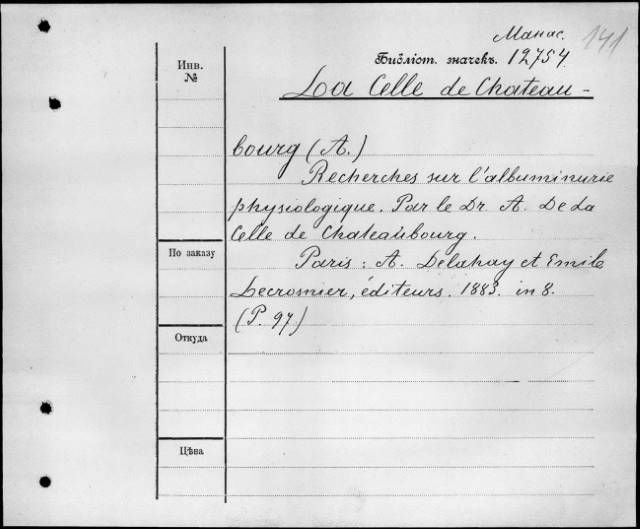 Манас.
141
Инв.
№
Библіот. значекъ. 12754
La Celle de Chateau-
bourg (A.)
Recherches sur l'albuminurie
physiologique. Par le Dr. A. De La
Celle de Chateaubourg.
По заказу
Paris: A. Delahay et Emile
Lecrosnier, éditeurs. 1883. in 8.
(P. 97)
Откуда
Цѣна